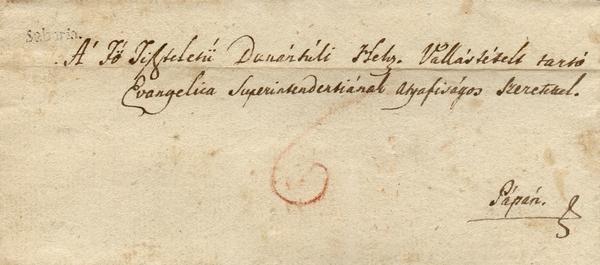 Sabaria.
A' Fő Tiszteletű Dunántúli Helv. Vallástételt tartó
Evangelica Superintendentiának Atyafiságos Szeretettel.
Pápán.